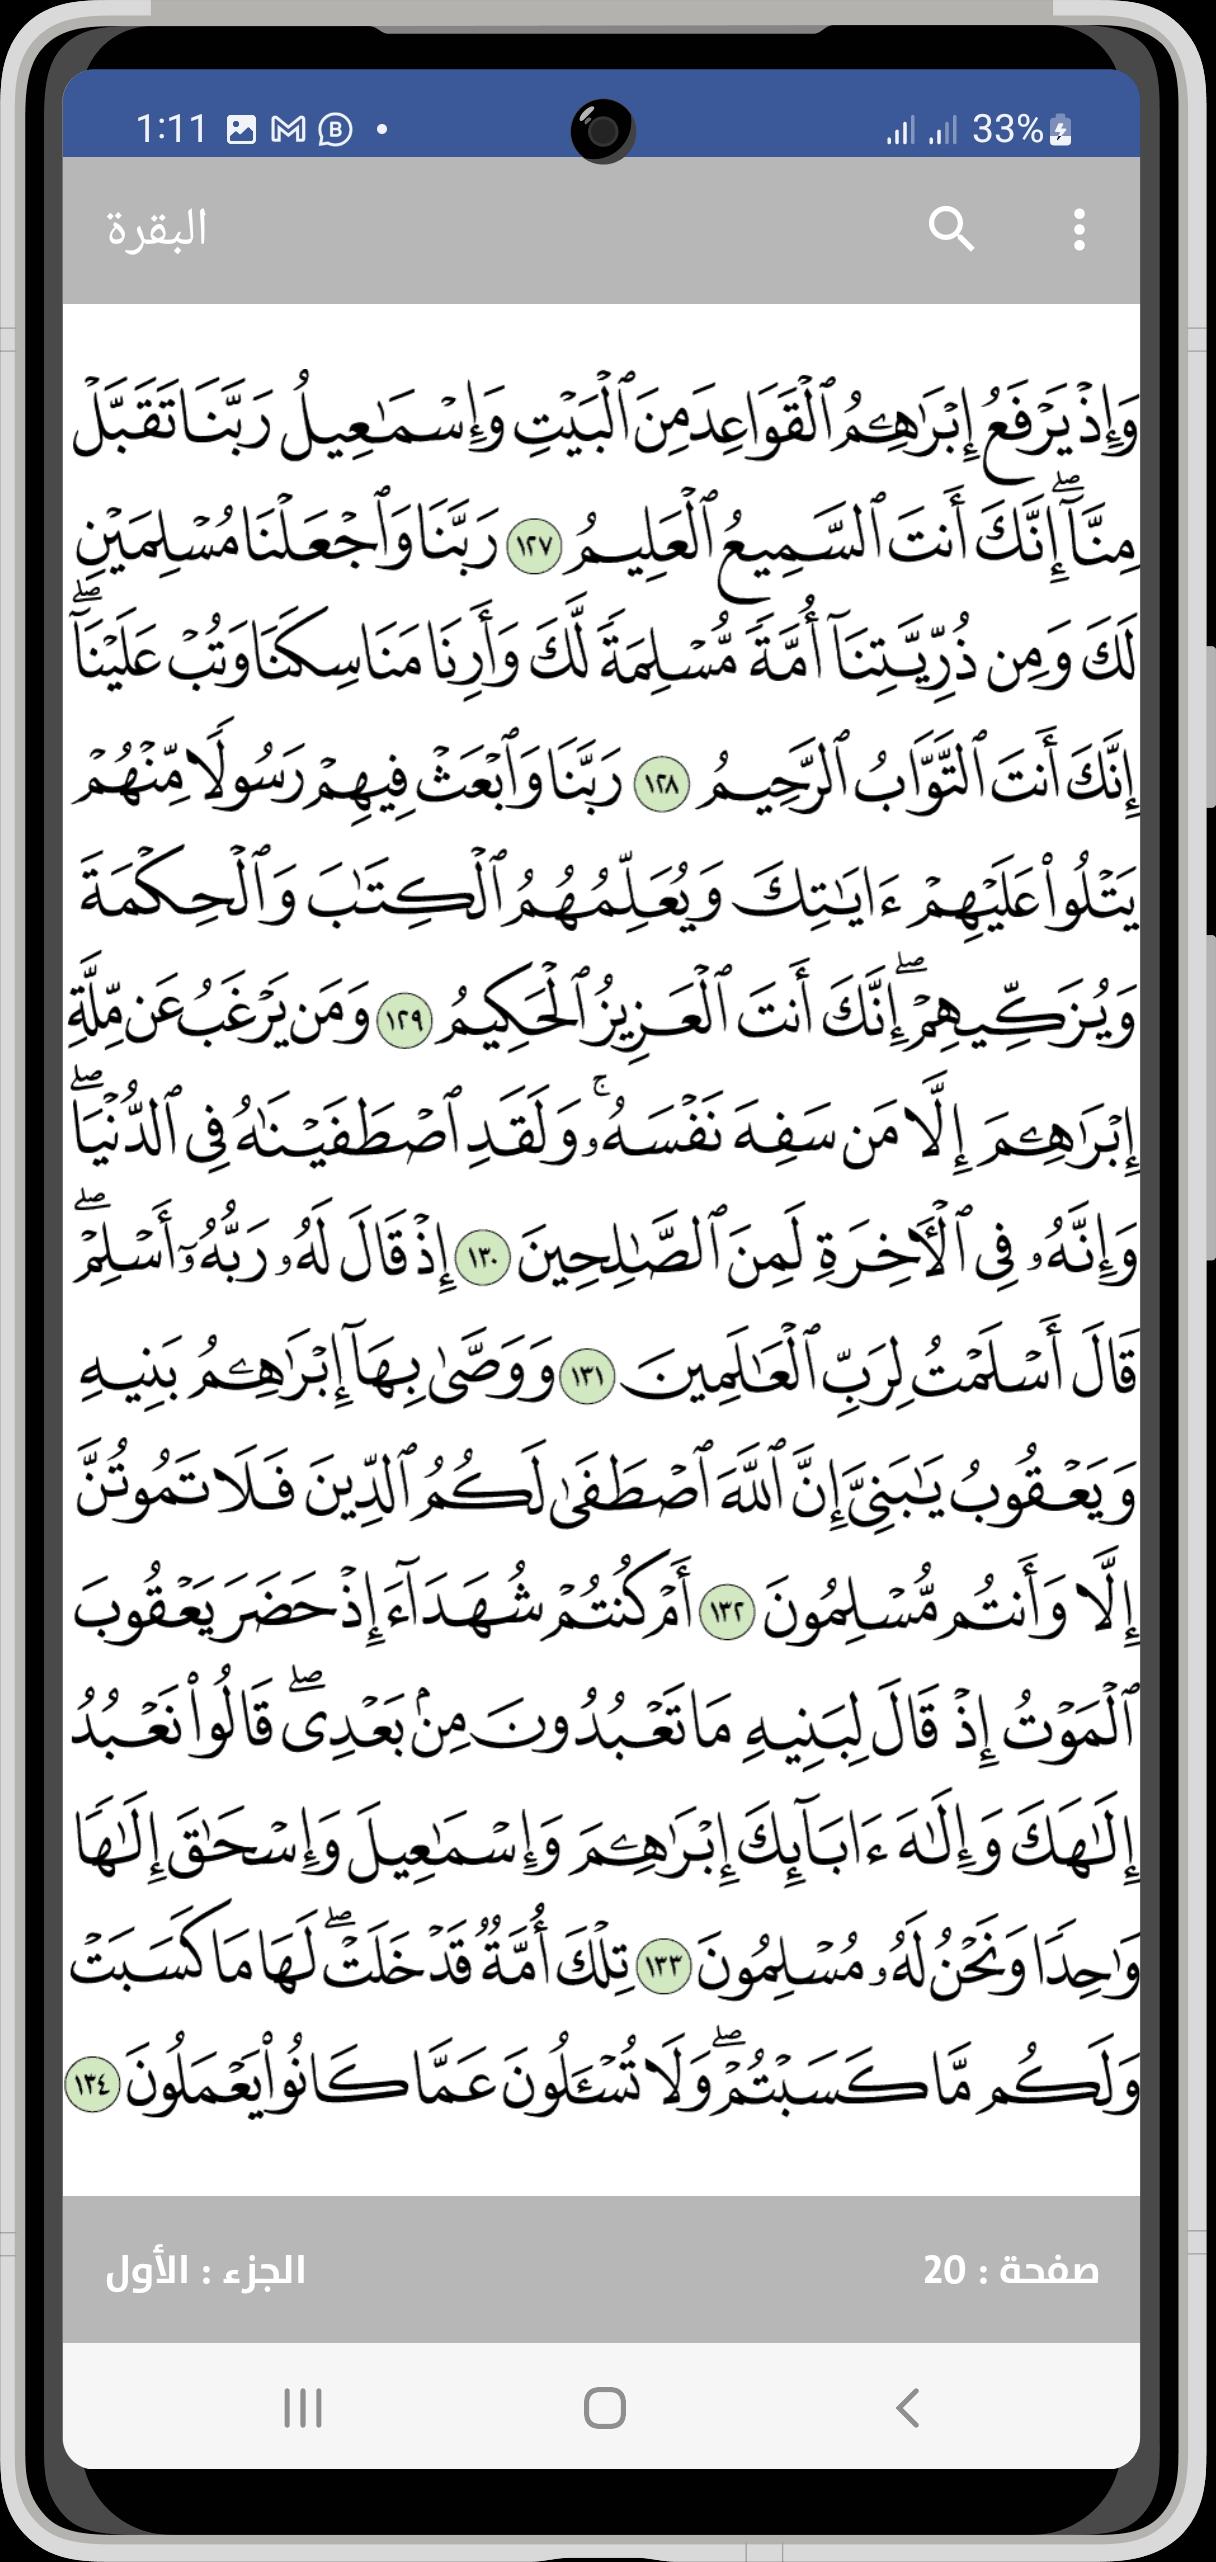 1:11
33%
البقرة
وَإِذْ يَرْفَعُ إِبْرَٰهِـۧمُ ٱلْقَوَاعِدَ مِنَ ٱلْبَيْتِ وَإِسْمَـٰعِيلُ رَبَّنَا تَقَبَّلْ
مِنَّآ ۖ إِنَّكَ أَنتَ ٱلسَّمِيعُ ٱلْعَلِيمُ ١٢٧ رَبَّنَا وَٱجْعَلْنَا مُسْلِمَيْنِ
لَكَ وَمِن ذُرِّيَّتِنَآ أُمَّةً مُّسْلِمَةً لَّكَ وَأَرِنَا مَنَاسِكَنَا وَتُبْ عَلَيْنَآ ۖ
إِنَّكَ أَنتَ ٱلتَّوَّابُ ٱلرَّحِيمُ ١٢٨ رَبَّنَا وَٱبْعَثْ فِيهِمْ رَسُولًا مِّنْهُمْ
يَتْلُوا۟ عَلَيْهِمْ ءَايَـٰتِكَ وَيُعَلِّمُهُمُ ٱلْكِتَـٰبَ وَٱلْحِكْمَةَ
وَيُزَكِّيهِمْ ۖ إِنَّكَ أَنتَ ٱلْعَزِيزُ ٱلْحَكِيمُ ١٢٩ وَمَن يَرْغَبُ عَن مِّلَّةِ
إِبْرَٰهِـۧمَ إِلَّا مَن سَفِهَ نَفْسَهُۥ ۚ وَلَقَدِ ٱصْطَفَيْنَـٰهُ فِى ٱلدُّنْيَا ۖ
وَإِنَّهُۥ فِى ٱلْـَٔاخِرَةِ لَمِنَ ٱلصَّـٰلِحِينَ ١٣٠ إِذْ قَالَ لَهُۥ رَبُّهُۥٓ أَسْلِمْ ۖ
قَالَ أَسْلَمْتُ لِرَبِّ ٱلْعَـٰلَمِينَ ١٣١ وَوَصَّىٰ بِهَآ إِبْرَٰهِـۧمُ بَنِيهِ
وَيَعْقُوبُ يَـٰبَنِىَّ إِنَّ ٱللَّهَ ٱصْطَفَىٰ لَكُمُ ٱلدِّينَ فَلَا تَمُوتُنَّ
إِلَّا وَأَنتُم مُّسْلِمُونَ ١٣٢ أَمْ كُنتُمْ شُهَدَآءَ إِذْ حَضَرَ يَعْقُوبَ
ٱلْمَوْتُ إِذْ قَالَ لِبَنِيهِ مَا تَعْبُدُونَ مِنۢ بَعْدِى ۖ قَالُوا۟ نَعْبُدُ
إِلَـٰهَكَ وَإِلَـٰهَ ءَابَآئِكَ إِبْرَٰهِـۧمَ وَإِسْمَـٰعِيلَ وَإِسْحَـٰقَ إِلَـٰهًا
وَٰحِدًا وَنَحْنُ لَهُۥ مُسْلِمُونَ ١٣٣ تِلْكَ أُمَّةٌ قَدْ خَلَتْ ۖ لَهَا مَا كَسَبَتْ
وَلَكُم مَّا كَسَبْتُمْ ۖ وَلَا تُسْـَٔلُونَ عَمَّا كَانُوا۟ يَعْمَلُونَ ١٣٤
صفحة : 20
الجزء : الأول